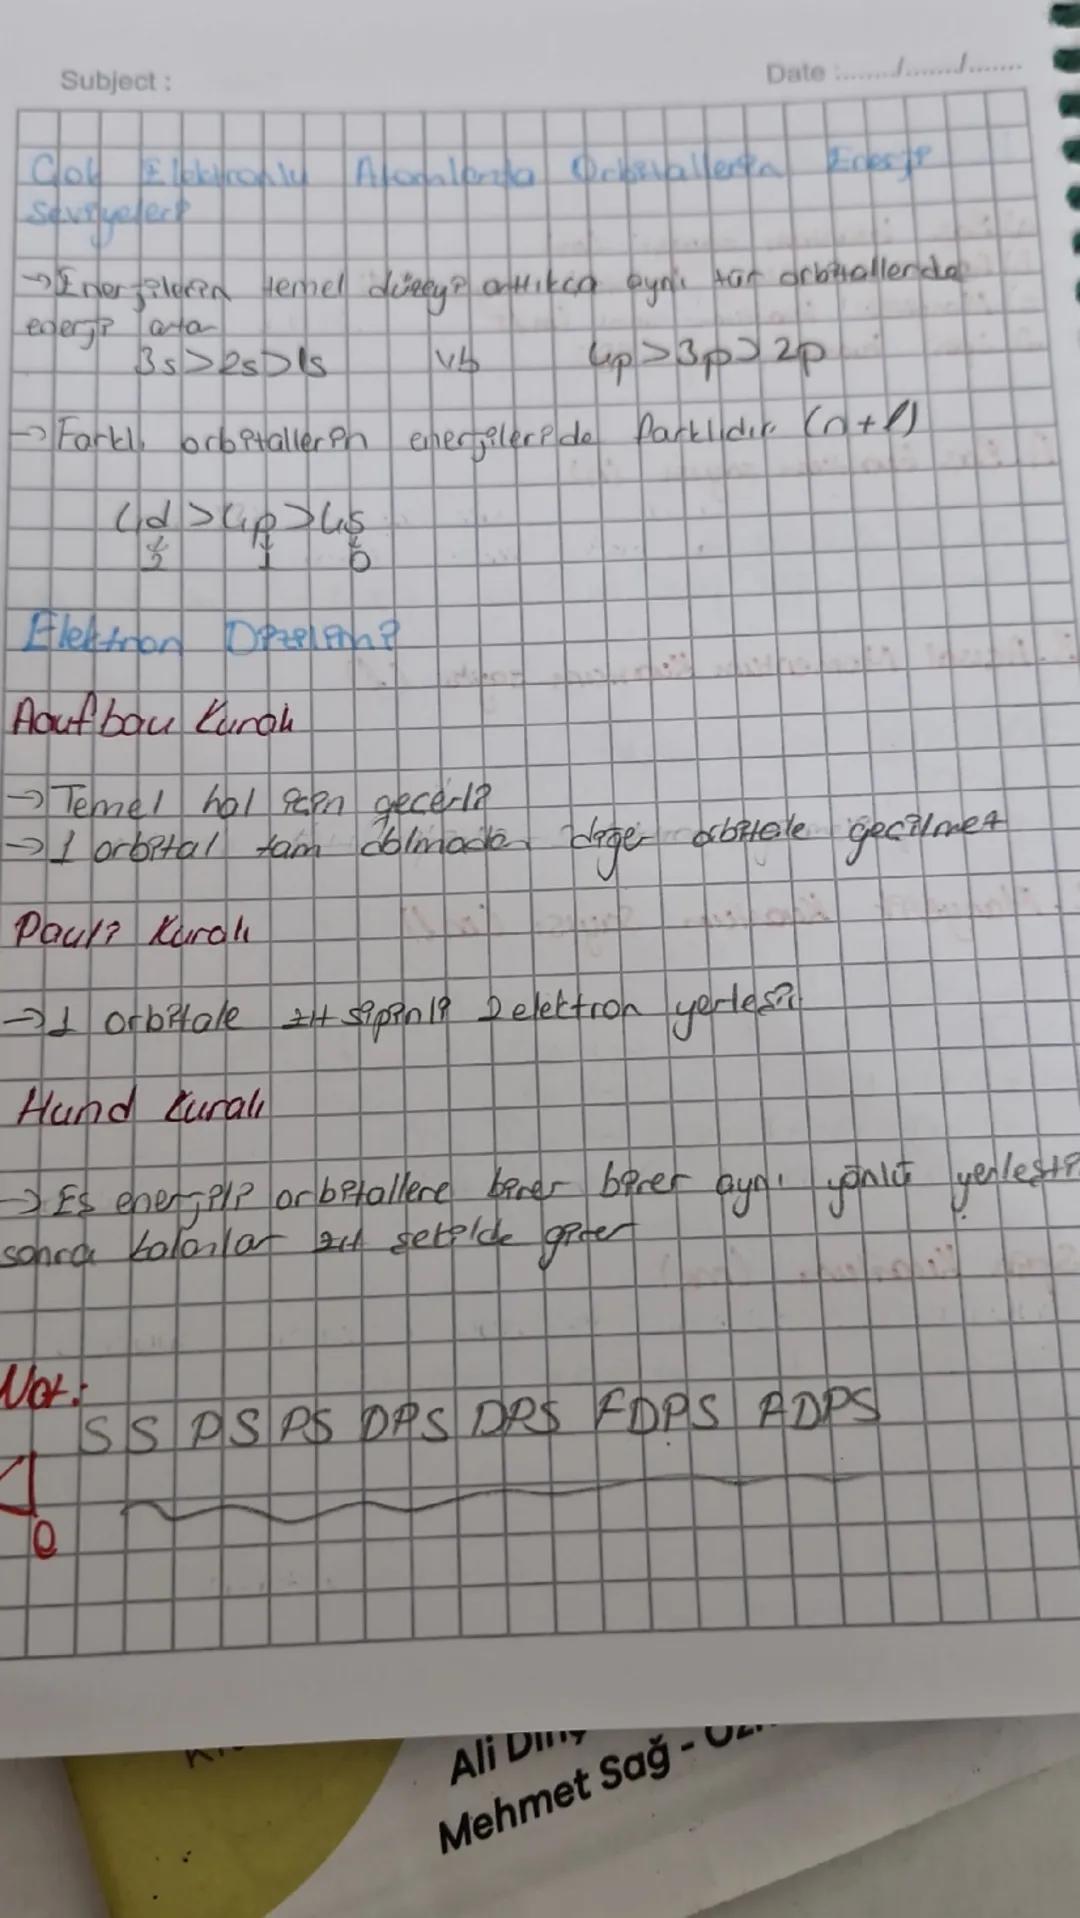 Subject :
Date :......./......./.......
Çok Elektronlu Atomlarda Orbitallerin Enerji
Seviyeleri
→ Enerjilerin temel düzeyi arttıkça aynı tür orbitallerde
enerji artar
3s>2s>1s vb 4p>3p>2p
→ Farklı orbitallerin enerjileride farklıdır. (n+l)
4d>4p>4s
2 1 0
Elektron Dizilimi
Aoufbau Kuralı
→ Temel hal için geçerli
→ 1 orbital tam dolmadan diğer orbitale geçilmez
Pauli Kuralı
→ 1 orbitale zıt sipinli 2 elektron yerleşir
Hund Kuralı
→ Eş enerjili orbitallere birer birer aynı yönlü yerleşti
sonra kalanlar zıt şekilde girer
Not:
SS PS PS DPS DPS FDPS FDPS
Ali
Mehmet Sağ -